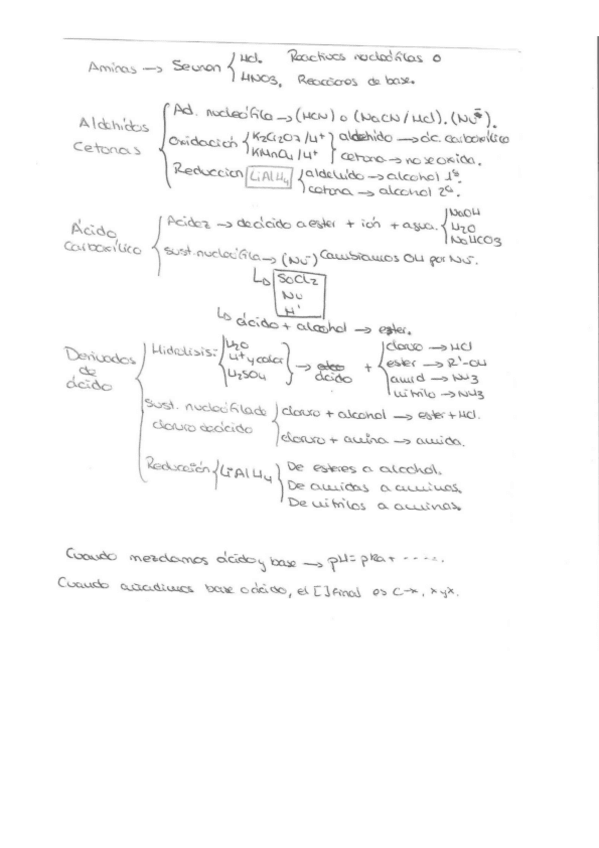 Aminas → Se unen { HCl. Reactivos nucleófilos o
HNO3, Reacciones de base.
Aldehídos
Cetonas
Ad. nucleófila → (HCN) o (NaCN/HCl). (Nu⁻).
Oxidación { K2Cr2O7/H+ } aldehído → ác. carboxílico
KMnO4/H+ } cetona → no se oxida.
Reducción LiAlH4 { aldehído → alcohol 1º
cetona → alcohol 2º.
Ácido
carboxílico
Acidez → de ácido a ester + ión + agua. { NaOH
H2O
NaHCO3
sust. nucleófila → (Nu⁻) Cambiamos OH por Nu⁻.
↳ SOCl2
Nu
H+
↳ ácido + alcohol → ester.
Derivados
de
ácido
Hidrólisis: { H2O
H+ y calor
H2SO4 } → ácido + { cloruro → HCl
ester → R'-OH
amid → NH3
nitrilo → NH3
sust. nucleófila de
cloruro de ácido
cloruro + alcohol → ester + HCl.
cloruro + amina → amida.
Reducción { LiAlH4 } De esteres a alcohol.
De amidas a aminas.
De nitrilos a aminas.
Cuando mezclamos ácido y base → pH = pKa + -----.
Cuando añadimos base o ácido, el [ ] final es C-x, x y x.